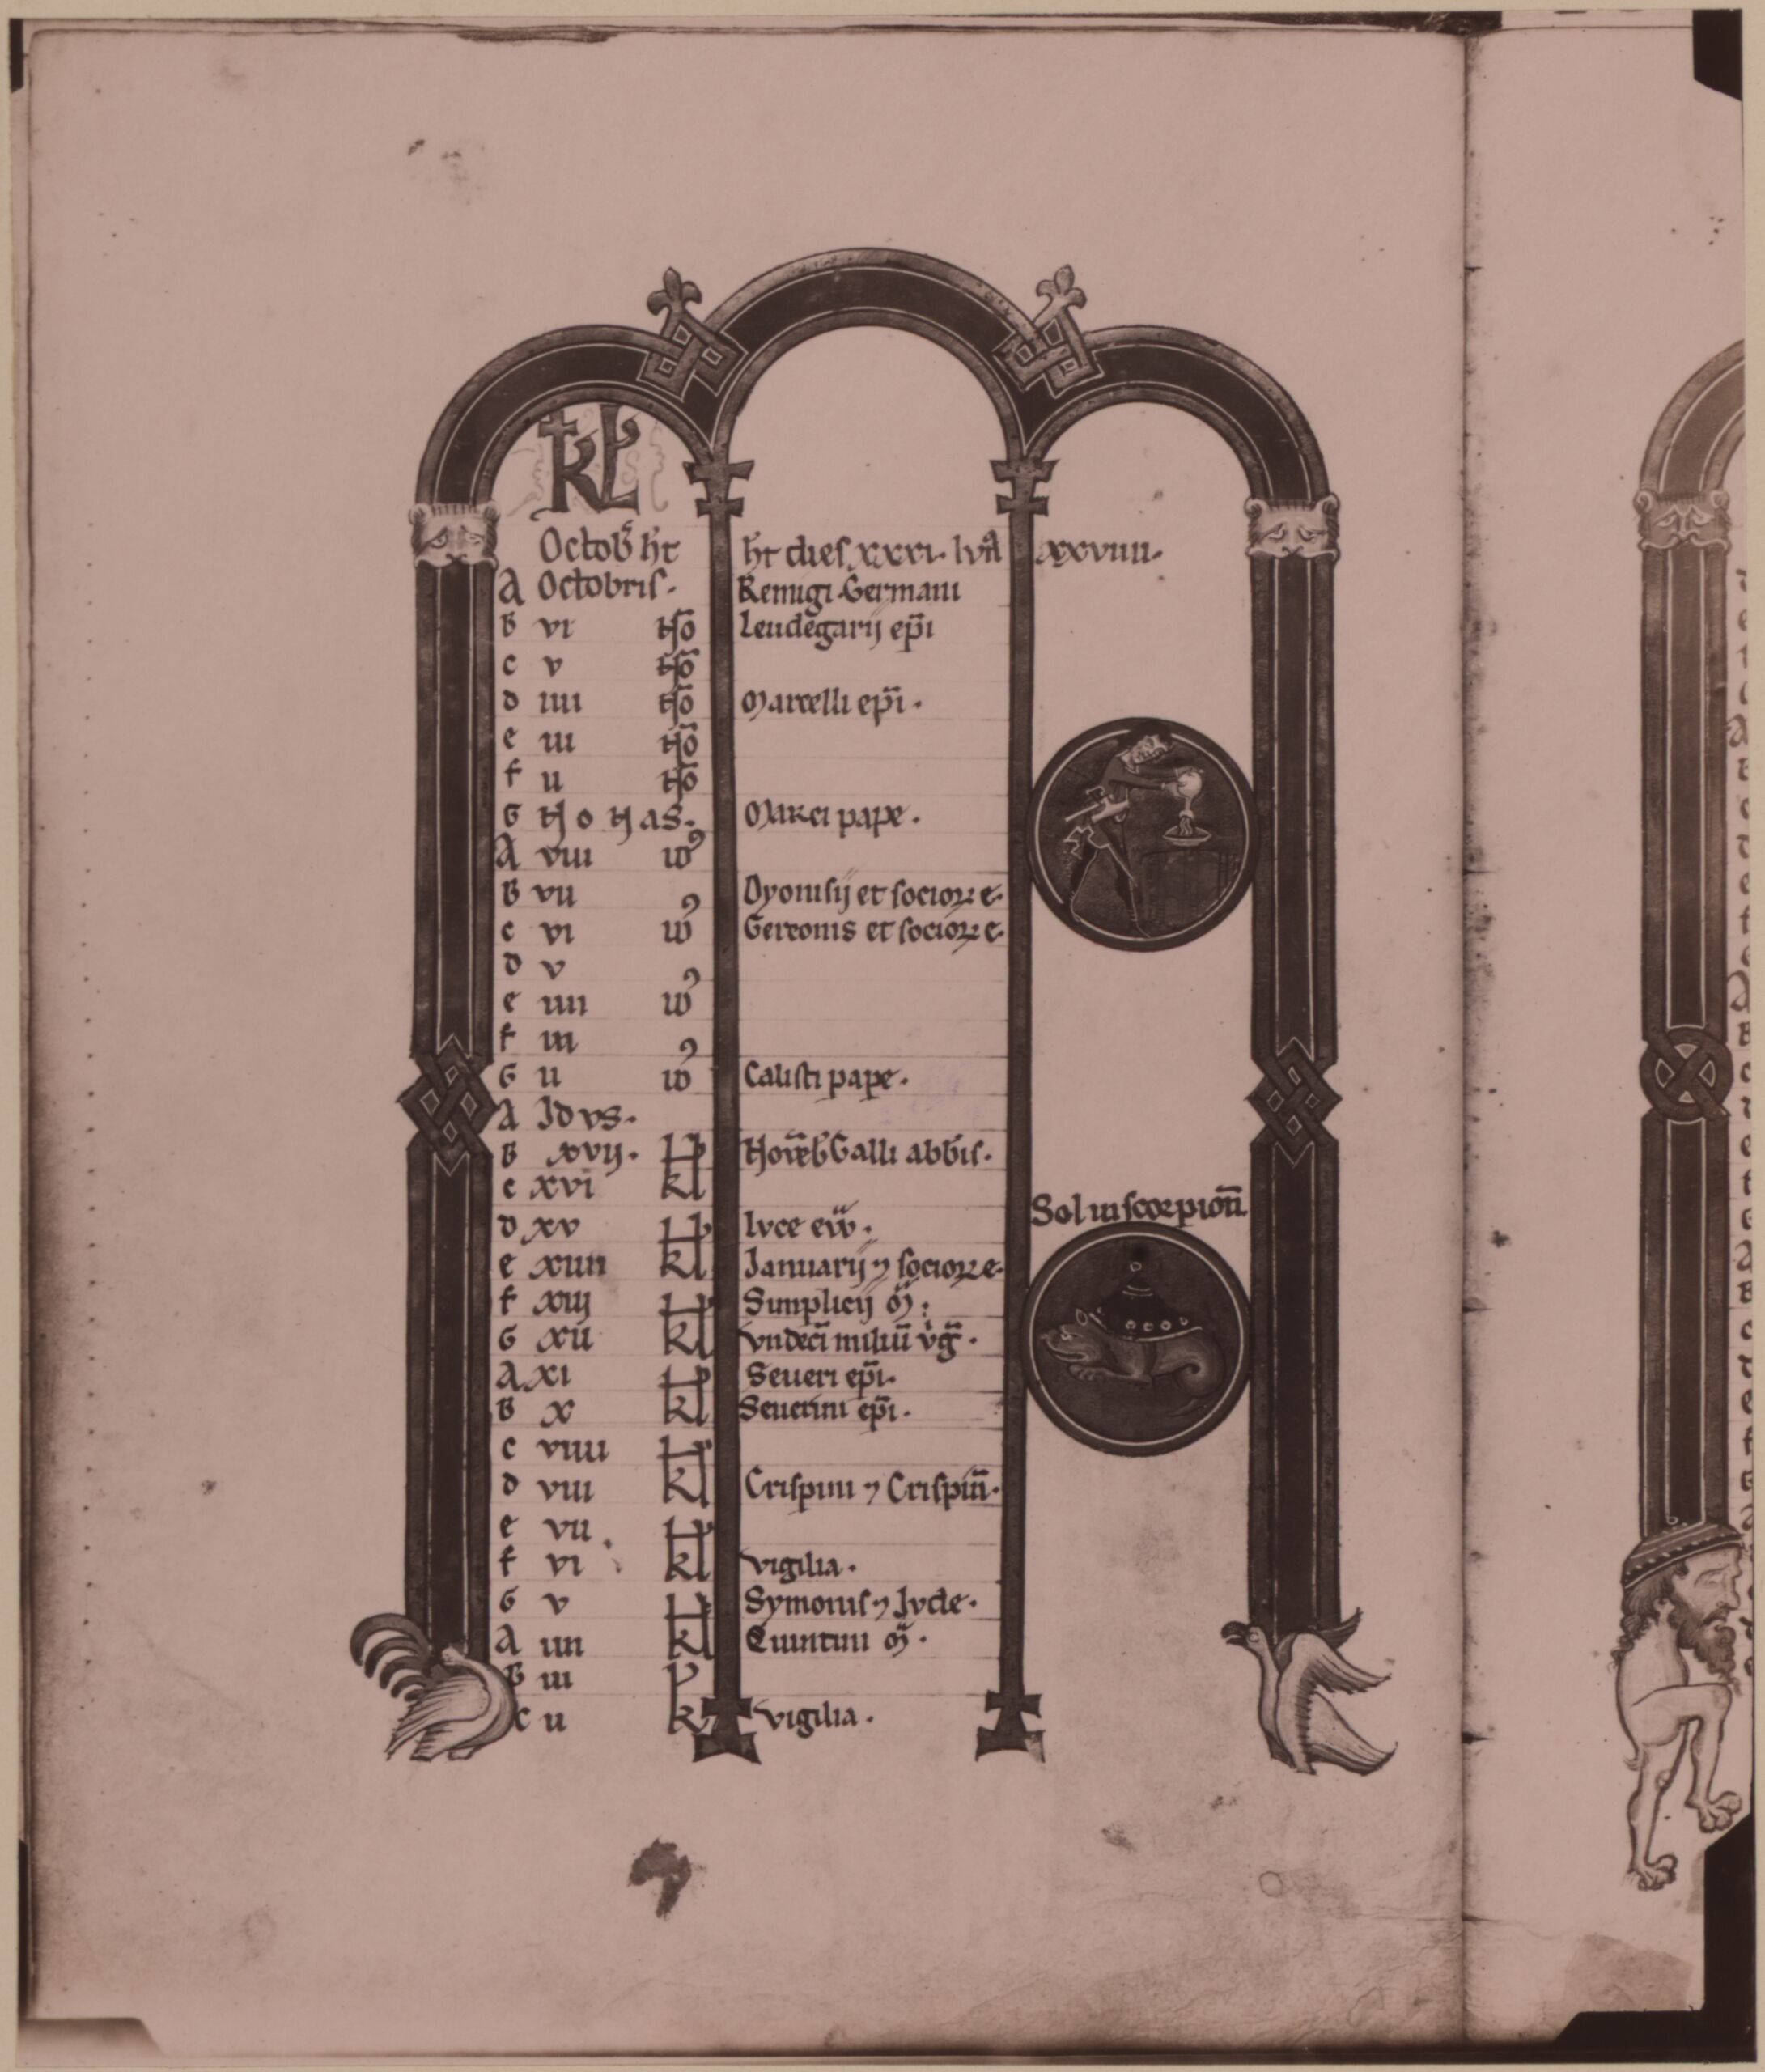 KL
Octob̄ hт hт dies xxxi. lvn̄ xxviiii.
A Octobris. Remigi. Germani
B vi No Leudegarij ep̄i
c v No
d iiii No Marcelli ep̄i.
e iii No
f ii No
G Nonas. Marci pape.
A viii id9
B vii Dyonisij et socioꝝ e.
c vi id9 Gereonis et socioꝝ e.
d v
e iiii id9
f iii
G ii id9 Calisti pape.
A Idvs.
B xvij. N Galli abb̄is.
c xvi kl
d xv N Lvce ew̄.
e xiiii kl Januarij ⁊ socioꝝ e.
f xiij N Simplicij m̄.
G xii kl Vndeci miliū v̄g.
A xi N Seueri ep̄i.
B x kl Seuerini ep̄i.
c viiii N
d viii kl Crispini ⁊ Crispin̄.
e vii N
f vi kl Vigilia.
G v N Symonis ⁊ Jvde.
A iiii kl Quintini m̄.
B iii
c ii k Vigilia.
Sol in scorpion̄